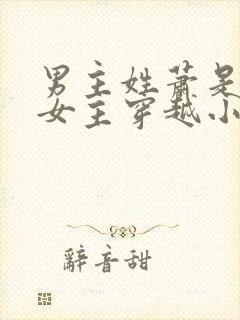 男主姓萧是
女主穿越小
辭音甜